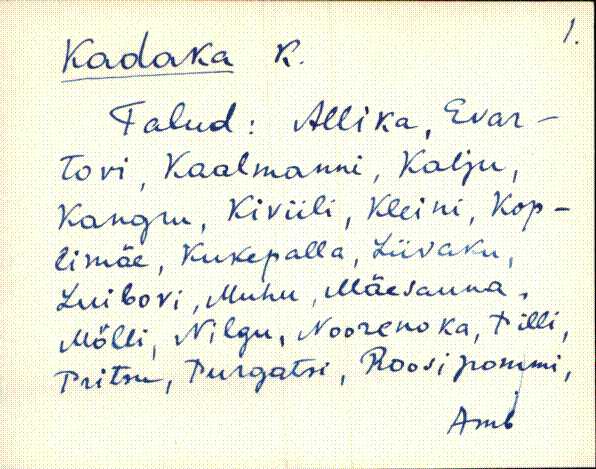 1.
Kadaka K.
Talud: Allika, Evar-
tovi, Kaalmanni, Kalju,
Kangru, Kiviili, Kleini, Kop-
limäe, Kukepalla, Liivaku,
Luibovi, Muhu, Mäesauna,
Mölli, Nilgu, Noorenoka, Pilli,
Pritsu, Purgatsi, Roosipommi,
Amb